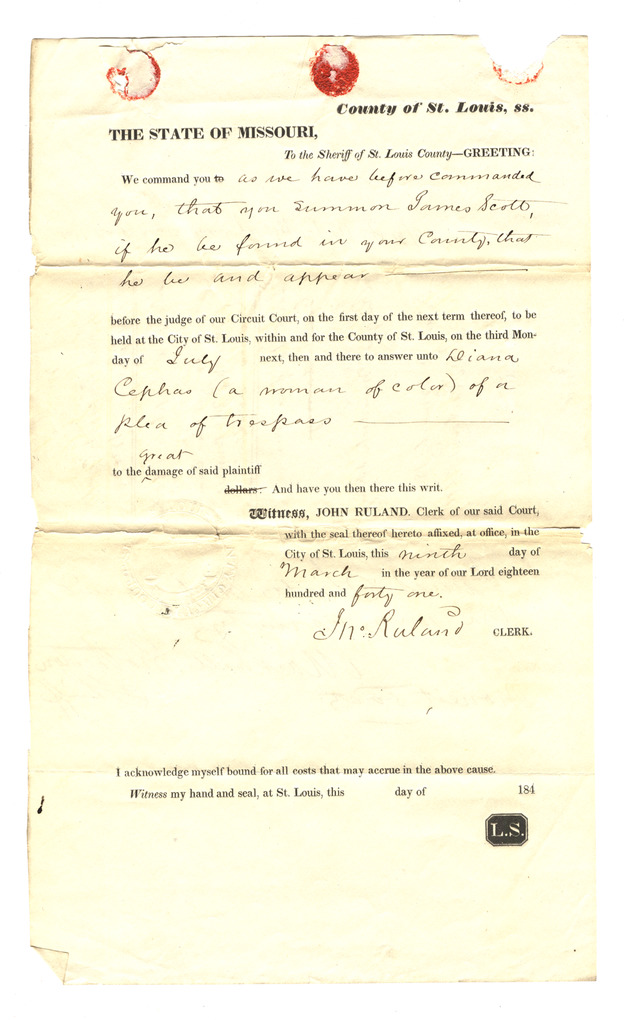 County of St. Louis, ss.
THE STATE OF MISSOURI,
To the Sheriff of St. Louis County—GREETING:
We command you to as we have before commanded
you, that you summon James Scott,
if he be found in your County, that
he be and appear
before the judge of our Circuit Court, on the first day of the next term thereof, to be
held at the City of St. Louis, within and for the County of St. Louis, on the third Mon-
day of July next, then and there to answer unto Diana
Cephas (a woman of color) of a
plea of trespass
great
to the damage of said plaintiff
dollars: And have you then there this writ.
Witness, JOHN RULAND. Clerk of our said Court,
with the seal thereof hereto affixed, at office, in the
City of St. Louis, this ninth day of
March in the year of our Lord eighteen
hundred and forty one.
Jno. Ruland CLERK.
I acknowledge myself bound for all costs that may accrue in the above cause.
Witness my hand and seal, at St. Louis, this day of 184
L.S.